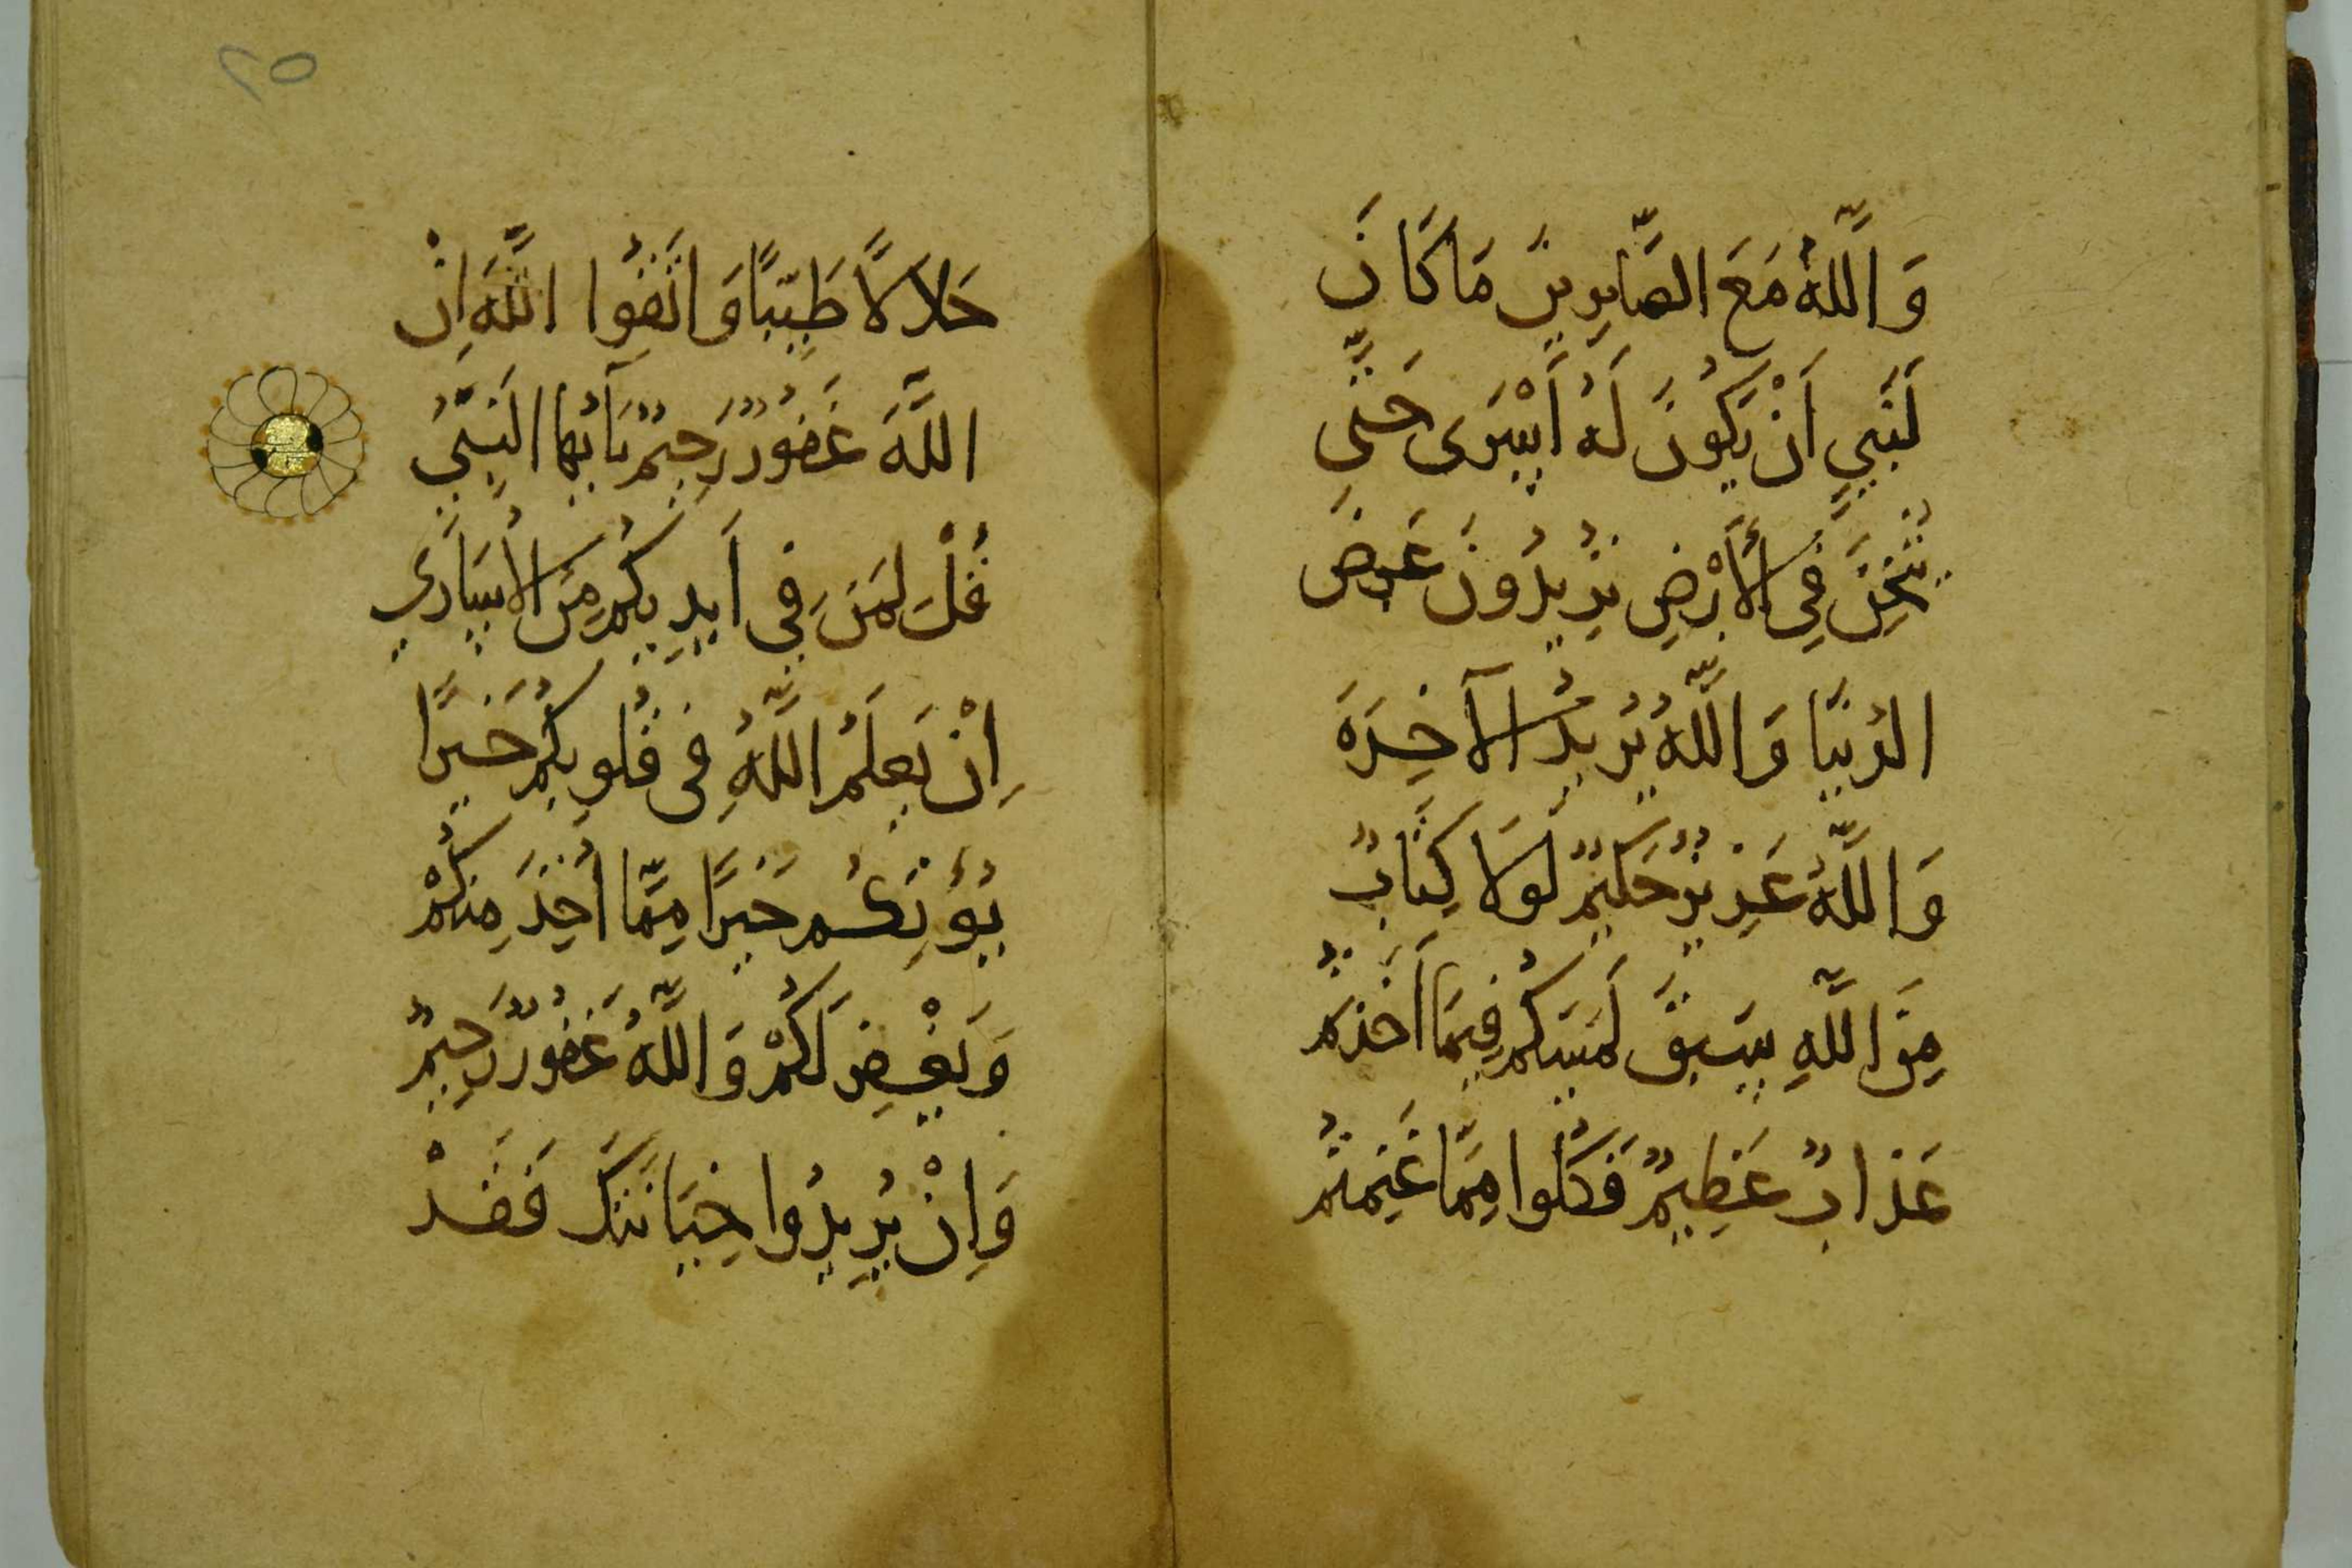 وَاللَّهُ مَعَ الصَّابِرِينَ مَا كَانَ
لَنَبِيٍّ اَنْ يَكُونَ لَهُ اَسْرَى حَتَّى
يُثْخِنَ فِي الْأَرْضِ تُرِيدُونَ عَرَضَ
الدُنْيَا وَاللَّهُ يُرِيدُ الْآخِرَةَ
وَاللَّهُ عَزِيزٌ حَكِيمٌ لَوْلَا كِتَابٌ
مِنَ اللَّهِ سَبَقَ لَمَسَّكُمْ فِيمَا أَخَذْتُمْ
عَذَابٌ عَظِيمٌ فَكُلُوا مِمَّا غَنِمْتُمْ
حَلَالًا طَيِّبًا وَاتَّقُوا اللَّهَ اِنَّ
اللَّهَ غَفُورٌ رَحِيمٌ يَآ أَيُّهَا النَّبِيُّ
قُلْ لِمَنْ فِي اَيْدِيكُمْ مِنَ الْأُسَارَى
اِنْ يَعْلَمُ اللَّهُ فِي قُلُوبِكُمْ خَيْرًا
يُؤْتِكُمْ خَيْرًا مِمَّا أُخِذَ مِنْكُمْ
وَيَغْفِرْ لَكُمْ وَاللَّهُ غَفُورٌ رَحِيمٌ
وَاِنْ يُرِيدُوا خِيَانَتَكَ فَقَدْ
٢٥